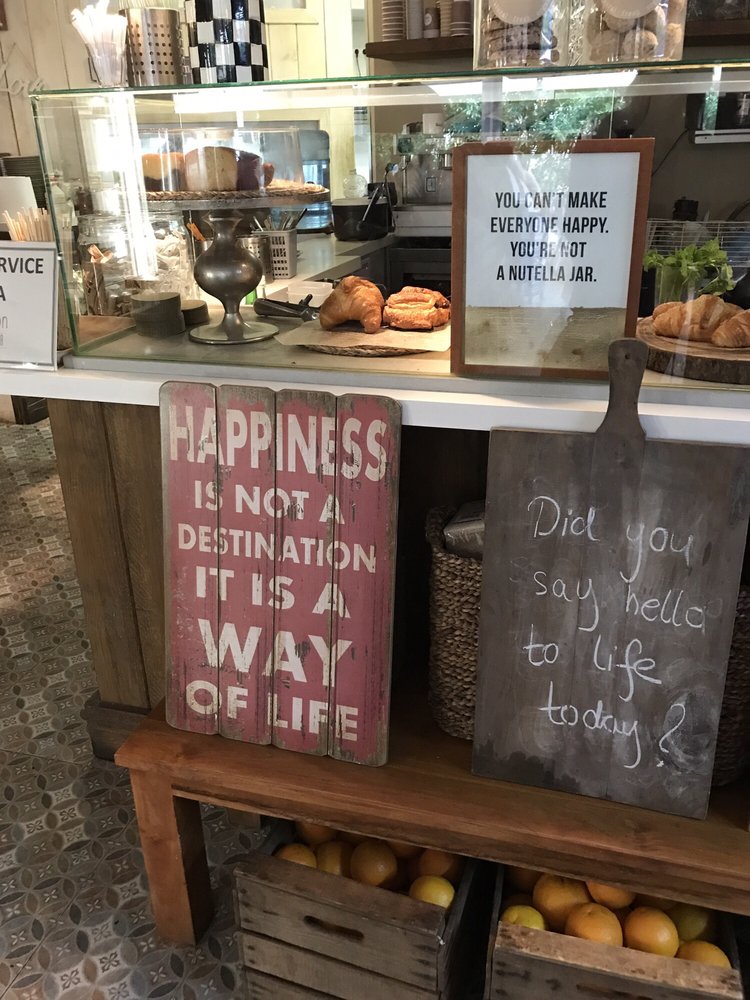 YOU CAN'T MAKE
EVERYONE HAPPY.
YOU'RE NOT
A NUTELLA JAR.
HAPPINESS
IS NOT A
DESTINATION
IT IS A
WAY
OF LIFE
Did you
say hello
to life
today?